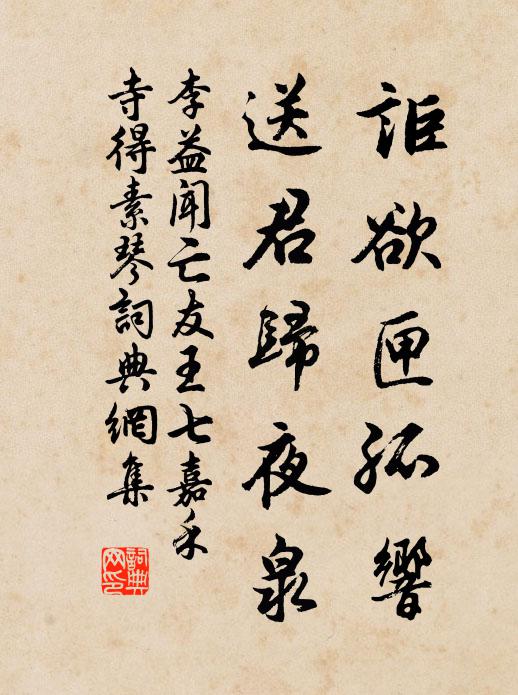 詎欲匣孤響
送君歸夜泉
李益聞亡友王七嘉禾
寺得素琴詞典網集
詞典
网印